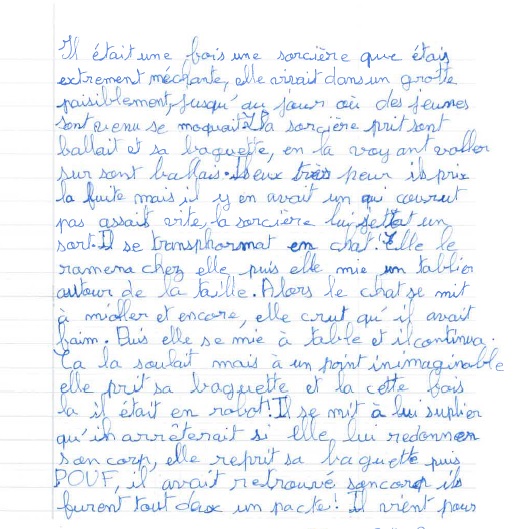 Il était une fois une sorcière que étais
extrement méchante, elle vivait dans un grotte
paisiblement, jusqu'au jour où des jeunes
sont venu se moquait. La sorcière prit sont
ballait et sa baguette, en la voyant voller
sur sont ballais. Ils eux très peur ils prix
la fuite mais il y en avait un qui couru
pas assait vite, la sorcière lui jettat un
sort. Il se transphormat en chat! Elle le
ramena chez elle, puis elle mie un tablier
autour de la taille. Alors le chat se mit
à mioller et encore, elle crut qu'il avait
faim. Puis elle se mie à table et il continua.
Ca la soulait mais à un point inimaginable
elle prit sa baguette et la cette fois
la il était en robot! Il se mit à lui suplier
qu'il arrêterait si elle lui redonner
son corp, elle reprit sa baguette puis
POUF, il avait retrouvé son corp ils
furent tout deux un pacte! Il vient pour